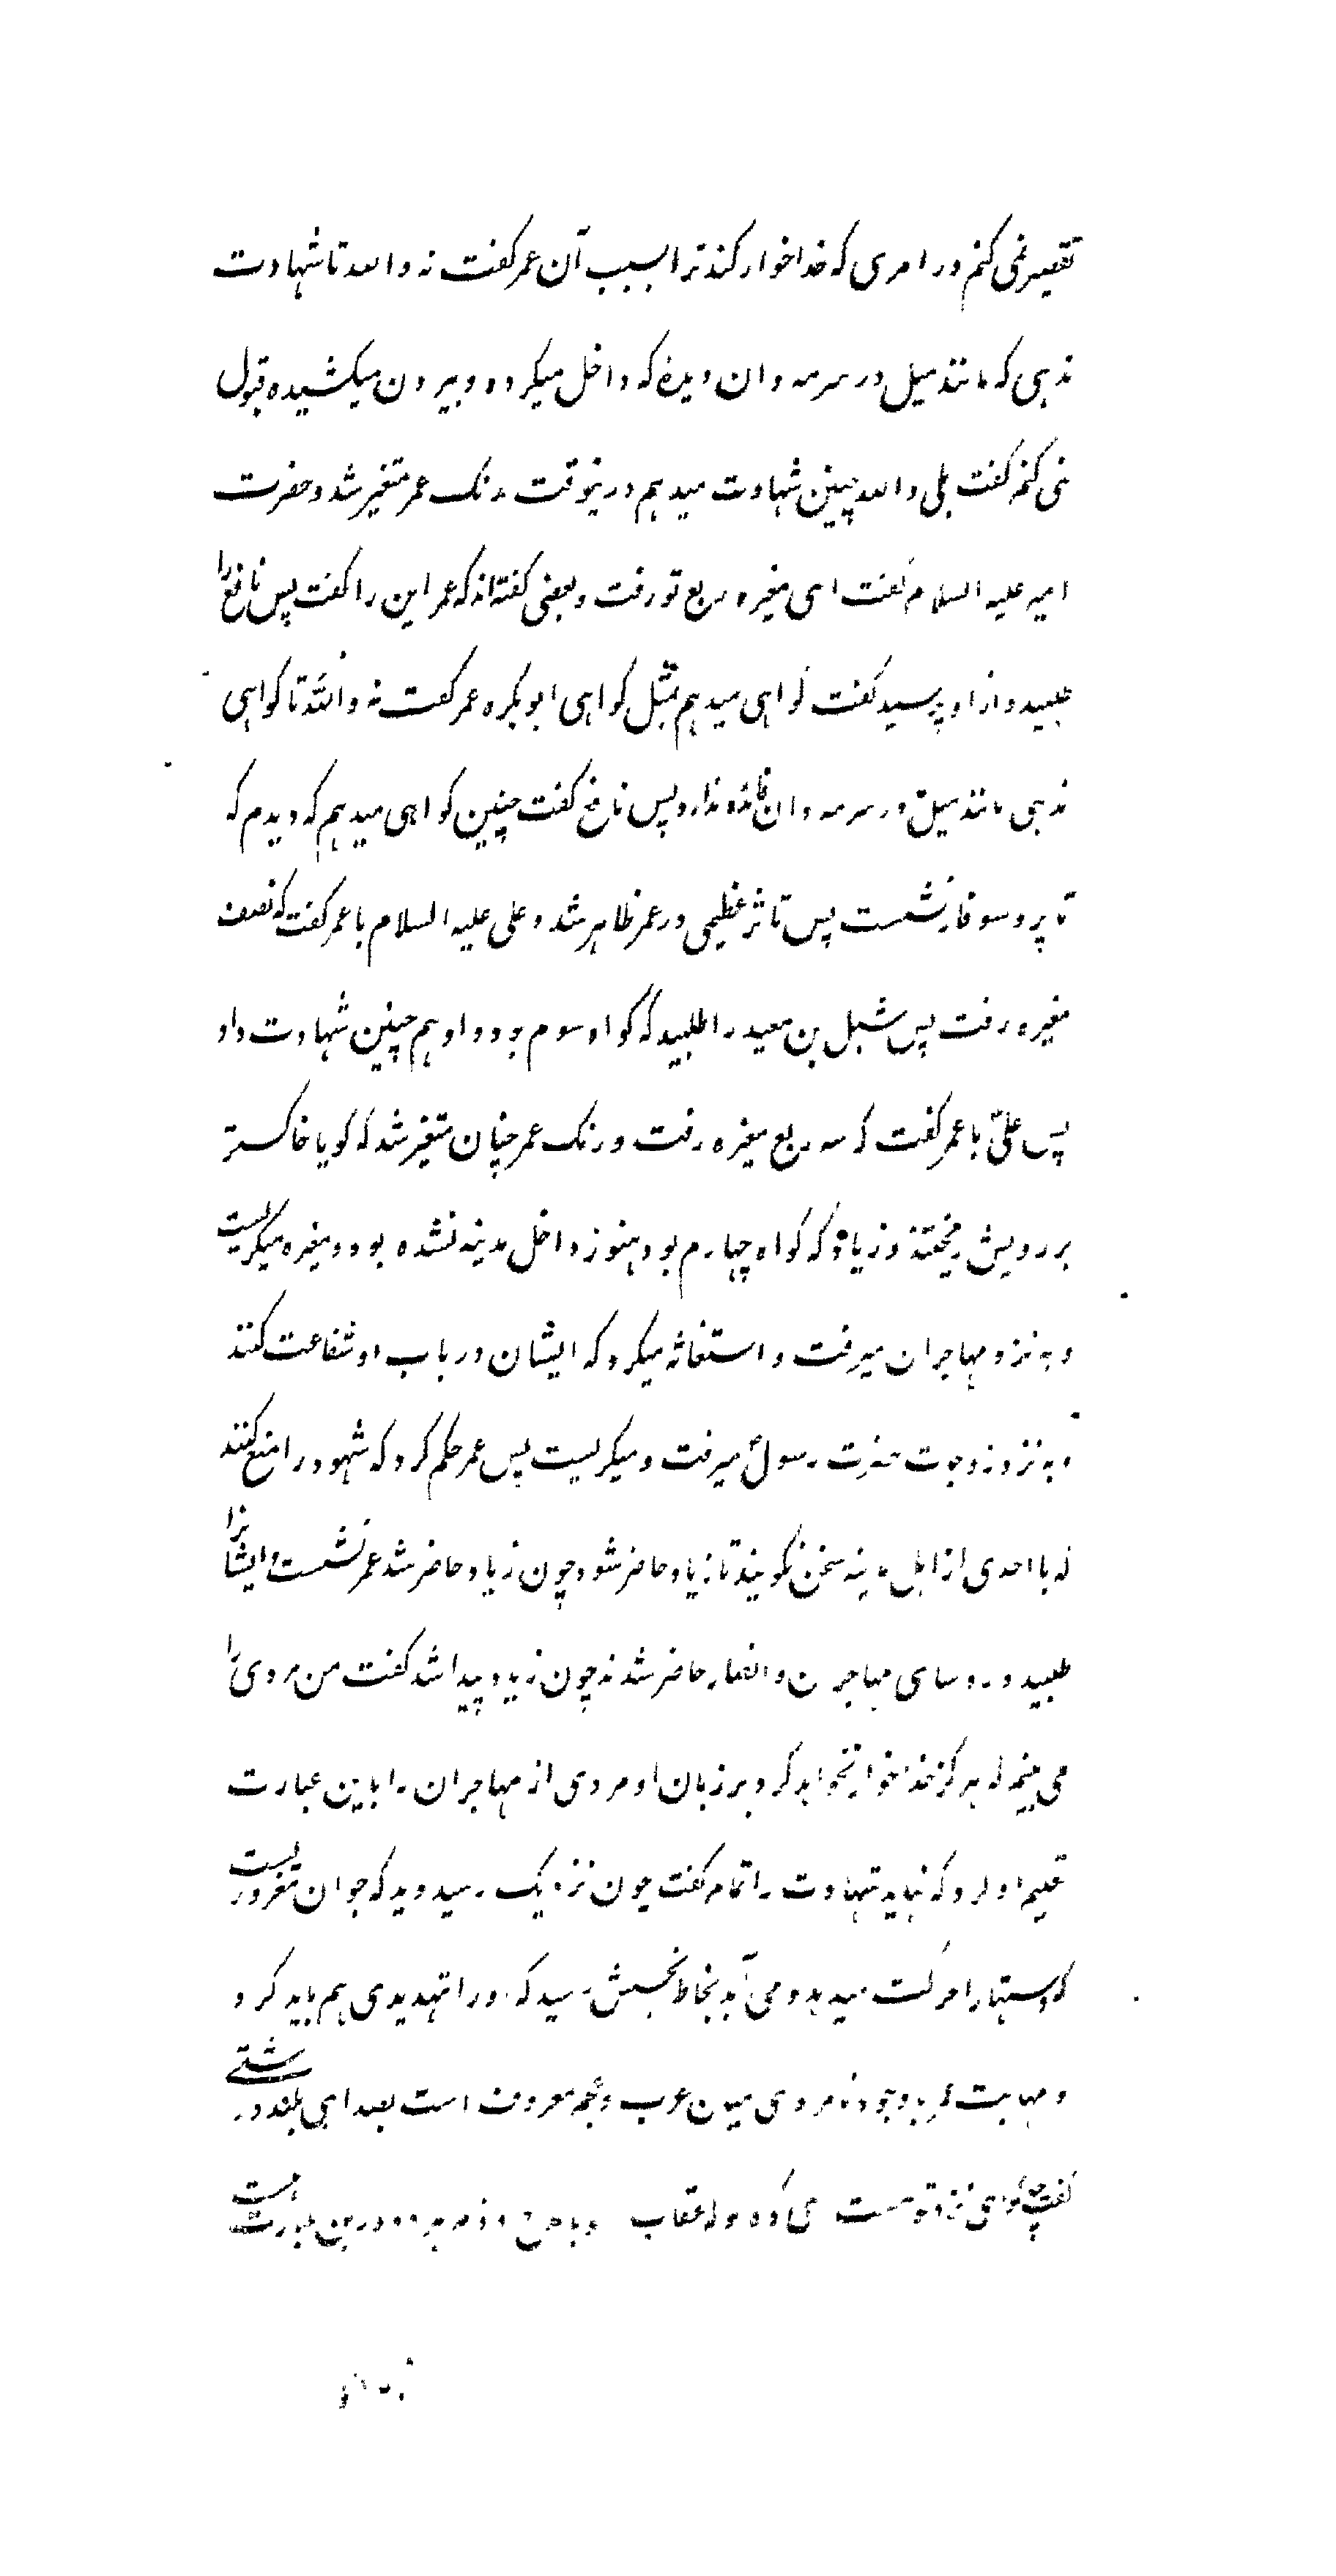 تقصیر نمی کنم در امری که خدا خوار کند ترا بسبب آن عمر کفت نه والله تا شهادت
ندهی که مانند میل در سرمه دان دیدهٔ که داخل میکرده و بیرون میکشیده قبول
نمی کنم کفت بلی والله چنین شهادت میدهم درینوقت رنک عمر متغیر شد و حضرت
امیر علیه السلام کفت ای مغیره ربع تو رفت و بعضی کفته اند که عمر این را کفت پس نافع را
طلبید و از او پرسید کفت کواهی میدهم بمثل کواهی ابو بکره عمر کفت نه والله تا کواهی
ندهی مانند میل در سرمه دان فائده ندارد پس نافع کفت چنین کواهی میدهم که دیدم که
تا پر و سوفار نشست پس تاثر عظیمی در عمر ظاهر شد و علی علیه السلام با عمر کفت که نصف
مغیره رفت پس شبل بن معبد را طلبید که کواه سوم بود و او هم چنین شهادت داد
پس علیّ با عمر کفت که سه ربع مغیره رفت و رنک عمر چنان متغیر شد که کویا خاکستر
بر رویش ریختند و زیاد که کواه چهارم بود هنوز داخل مدینه نشده بود و مغیره میکریست
و به نزد مهاجران میرفت و استغاثه میکرد که ایشان در باب او شفاعت کنند
و به نزد زوجات حضرت رسول میرفت و میکریست پس عمر حکم کرد که شهود را منع کنند
که با احدی از اهل مدینه سخن نکویند تا زیاد حاضر شود چون زیاد حاضر شد عمر نشست و ایشانرا
طلبید و روسای مهاجران و انصار حاضر شدند چون زیاد پیدا شد کفت من مردی را
می بینم که هرکز خدا خوار نخواهد کرد بر زبان او مردی از مهاجران را باین عبارت
تعلیم او کرد که نباید شهادت را تمام کفت چون نزدیک رسید دید که جوان مغروریست
که دستها را حرکت میدهد و می آید بخاطر نحسش رسید که او را تهدیدی هم باید کرد
و مهابت عمر با وجود نامردی میان عرب و عجم معروف است بصدای بلند درشتی
کفت چه کواهی نزد تو هست ای عقاب و باین عبارت